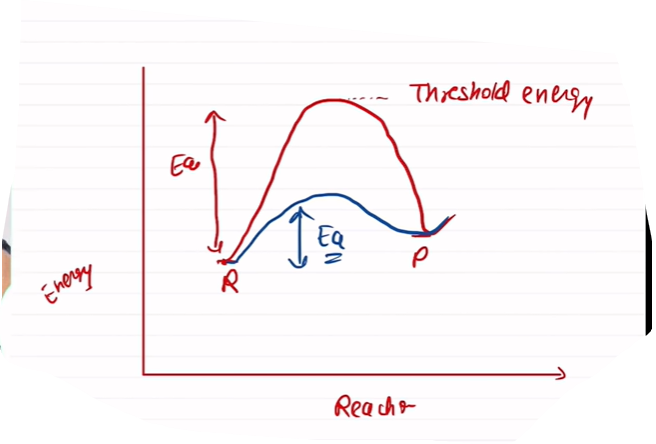 Threshold energy
Ea
Ea
R
P
Energy
Reactio